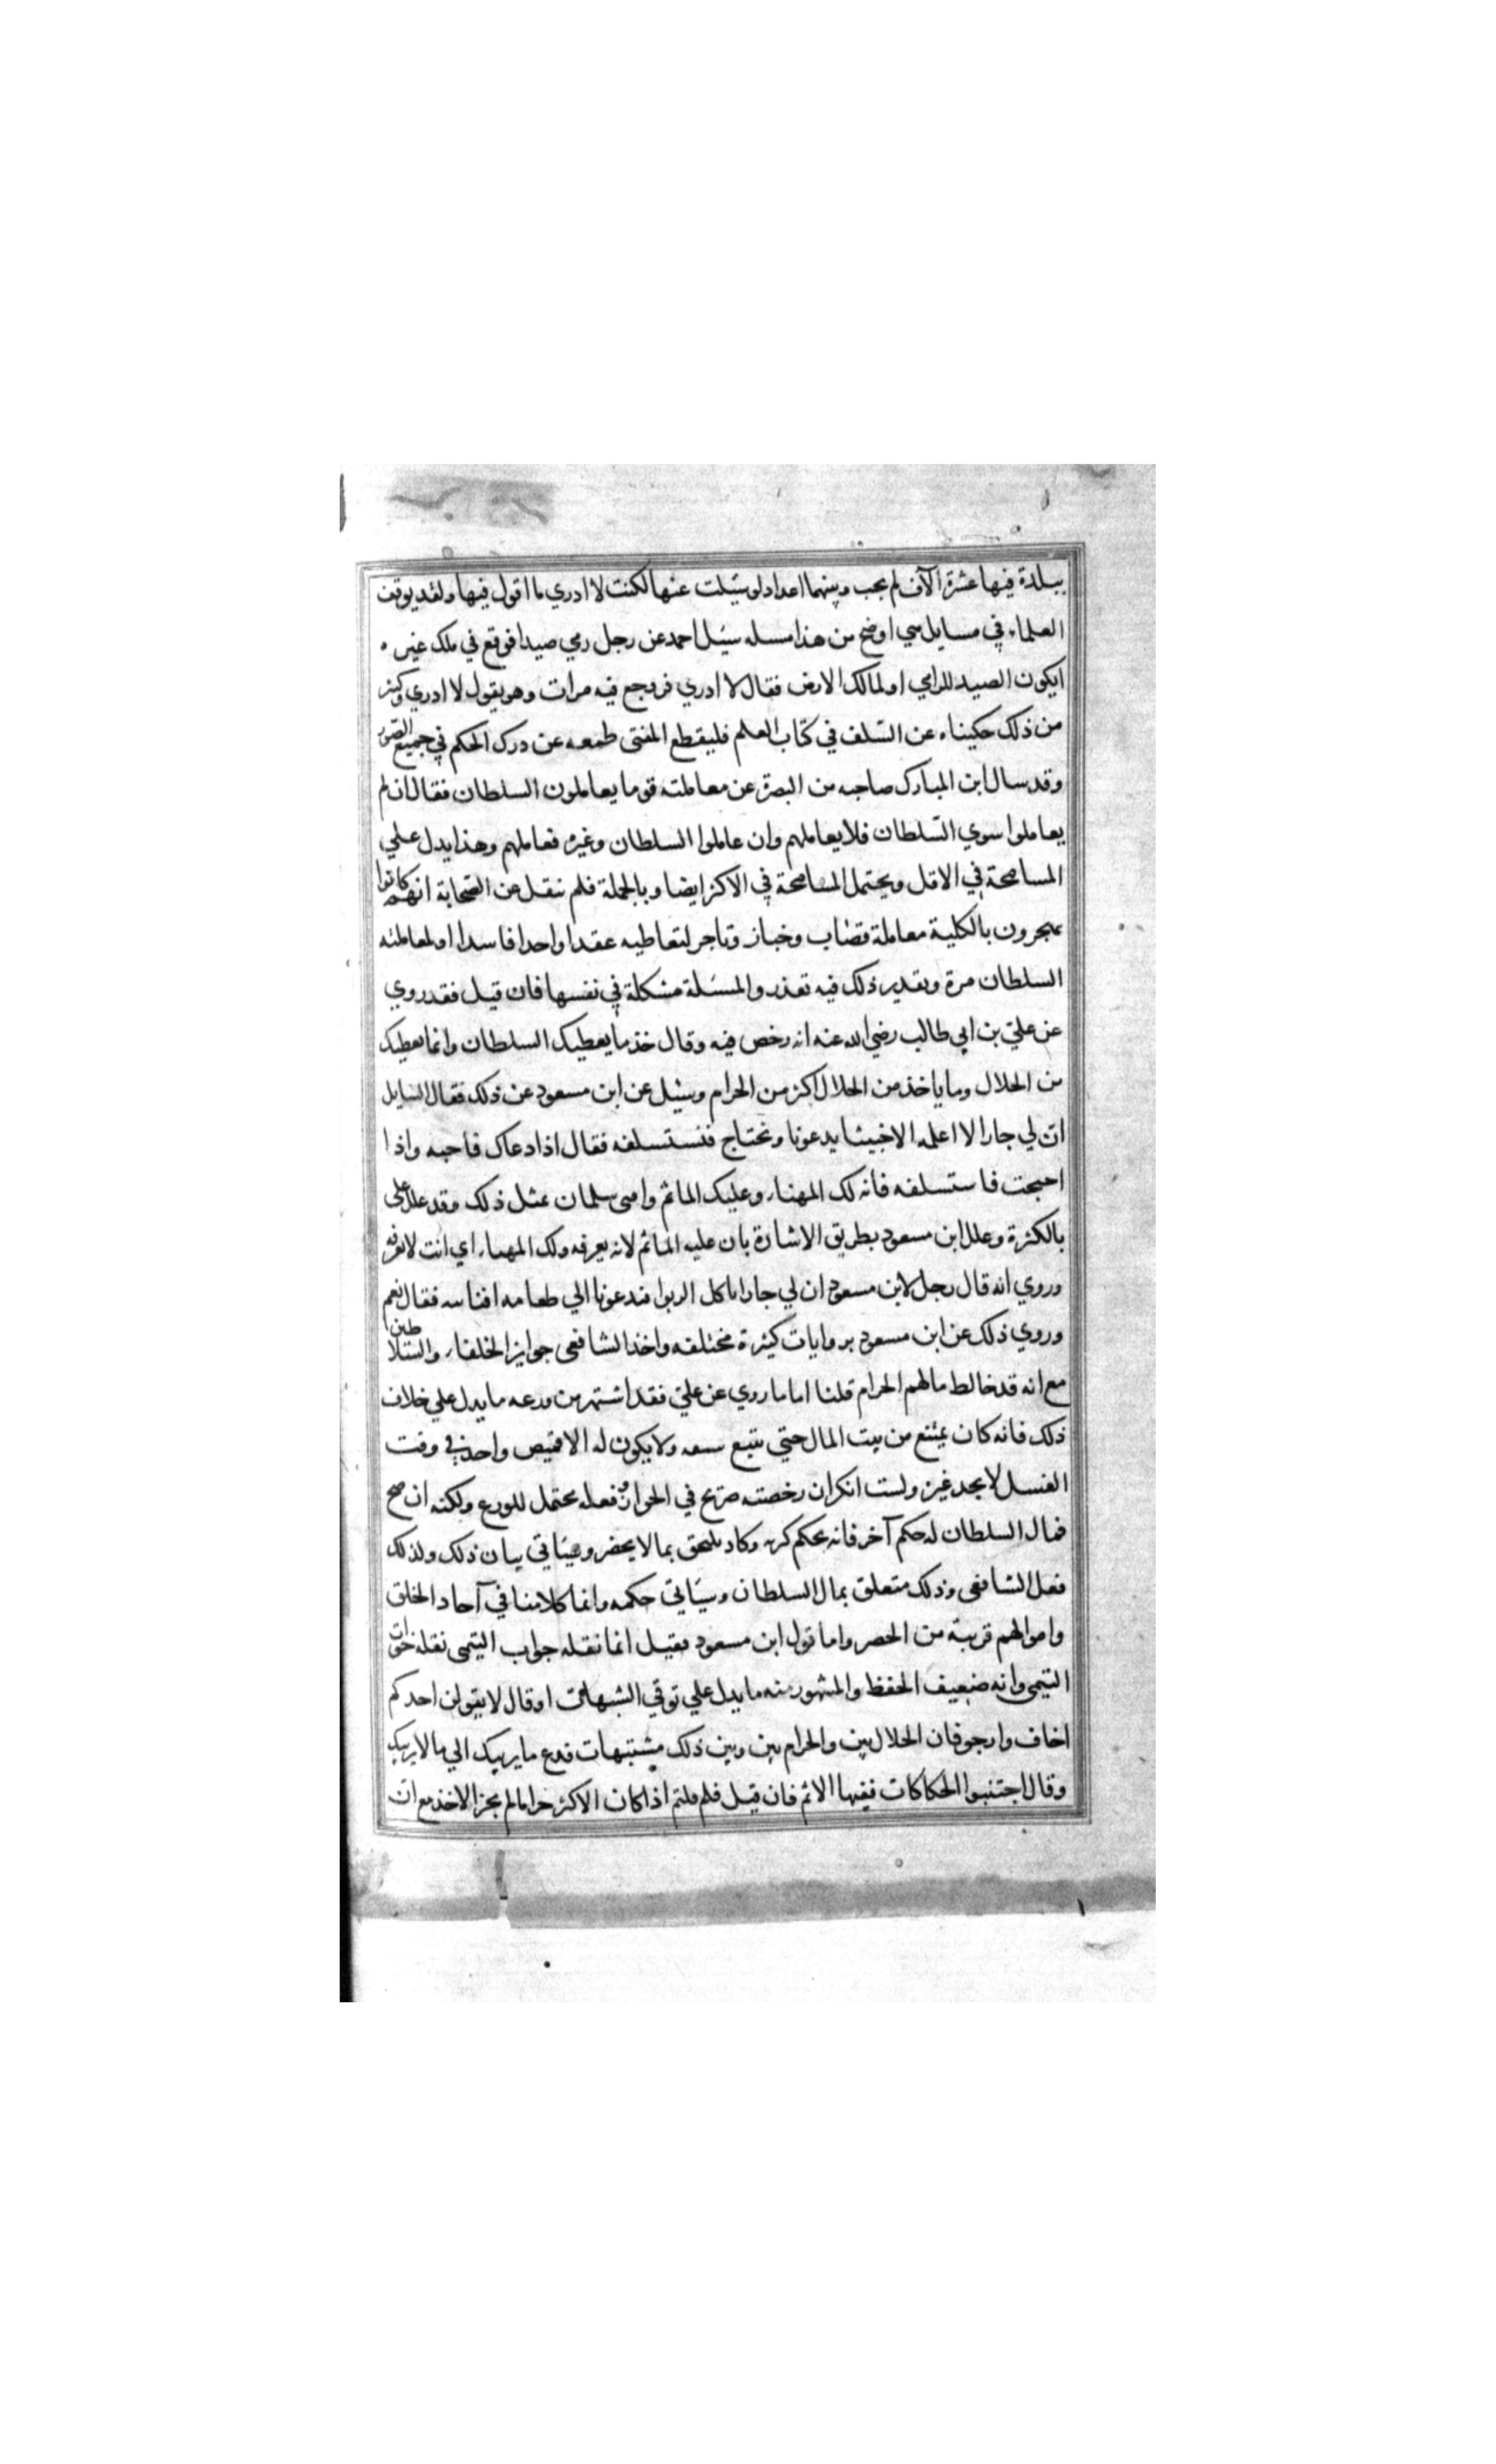 ببلدة فيها عشرة آلاف لم يجب وبينهما اعداد لو سئلت عنها لكنت لا ادري ما اقول فيها ولقد يوقف
العلماء في مسايل هي اوضح من هذا مسله سئل احمد عن رجل رمي صيدا فوقع في ملك غيره
ايكون الصيد للرامي او لمالك الارض فقال لا ادري فروجع فيه مرات وهو يقول لا ادري وكثير
من ذلك حكيناه عن السلف في كتاب العلم فليقطع المفتى طمعه عن درك الحكم في جميع الصور
وقد سال ابن المبارك صاحبه من البصرة عن معاملته قوما يعاملون السلطان فقال ان لم
يعاملوا سوي السلطان فلا يعاملهم وان عاملوا السلطان وغيره فعاملهم وهذا يدل علي
المسامحة في الاقل ويحتمل المسامحة في الاكثر ايضا وبالجملة فلم ننقل عن الصحابة انهم كانوا
يهجرون بالكلية معاملة قصاب وخباز وتاجر لتعاطيه عقدا واحدا فاسدا او لمعاملته
السلطان مرة وتقدير ذلك فيه تعذر والمسئلة مشكلة في نفسها فان قيل فقد روي
عن علي بن ابي طالب رضي الله عنه انه رخص فيه وقال خذ ما يعطيك السلطان وانما يعطيك
من الحلال وما ياخذ من الحلال اكثر من الحرام وسئل عن ابن مسعود عن ذلك فقال السايل
ان لي جارا لا اعلمه الا خبيثا يدعونا ونحتاج فنستسلفه فقال اذا دعاك فاجبه واذا
احتجت فاستسلفه فانه لك المهناء وعليك الماثم وافتى سلمان بمثل ذلك وقد علل علي
بالكثرة وعلل ابن مسعود بطريق الاشارة بان عليه الماثم لانه يعرفه ولك المهناء اي انت لا تعرفه
وروي انه قال رجل لابن مسعود ان لي جارا ياكل الربوا فيدعونا الي طعامه افناته فقال نعم
وروي ذلك عن ابن مسعود بروايات كثيرة مختلفه واخذ الشافعى جوايز الخلفاء والسلاطين
مع انه قد خالط مالهم الحرام قلنا اما ما روي عن علي فقد اشتهر من ورعه ما يدل علي خلاف
ذلك فانه كان يمتنع من بيت المال حتي يبيع سيفه ولا يكون له الا قميص واحد في وقت
الغسل لا يجد غيره ولست انكر ان رخصته صريح في الجواز وفعله محتمل للورع ولكنه ان صح
فمال السلطان له حكم آخر فانه بحكم كثرته وكاد يلتحق بما لا يحصر وسياتي بيان ذلك ولذلك
فعل الشافعى وذلك متعلق بمال السلطان وسياتي حكمه وانما كلامنا في آحاد الخلق
واموالهم قريبة من الحصر واما قول ابن مسعود فقيل انما نقله جواب التيمى نقله خوات
التيمى وانه ضعيف الحفظ والمشهور منه ما يدل علي توقي الشبهات او قال لا يقولن احدكم
اخاف وارجو فان الحلال بين والحرام بين وبين ذلك مشتبهات فدع ما يريبك الي ما لا يريبك
وقال اجتنبوا الحكاكات ففيها الاثم فان قيل فلم قلتم اذا كان الاكثر حراما لم يجز الاخذ مع ان